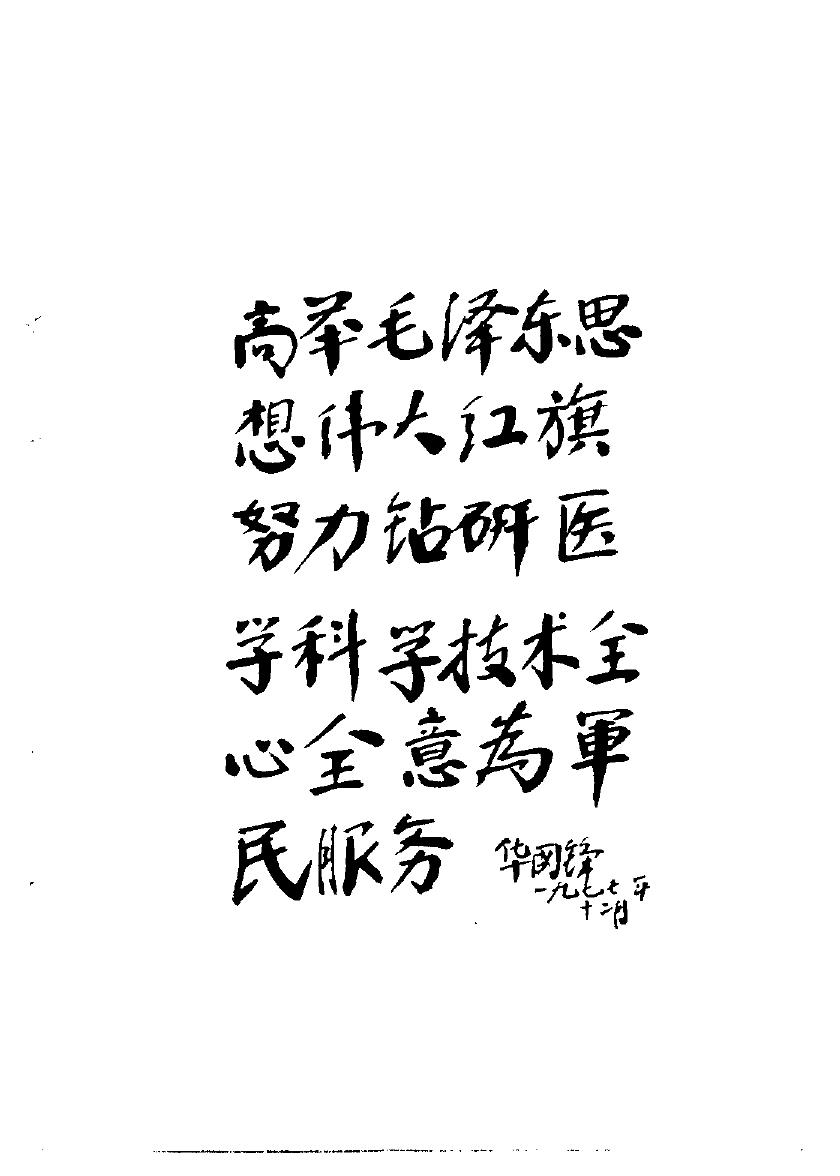 高举毛泽东思
想伟大红旗
努力钻研医
学科学技术全
心全意為軍
民服务
华国锋
一九七七年
十二月